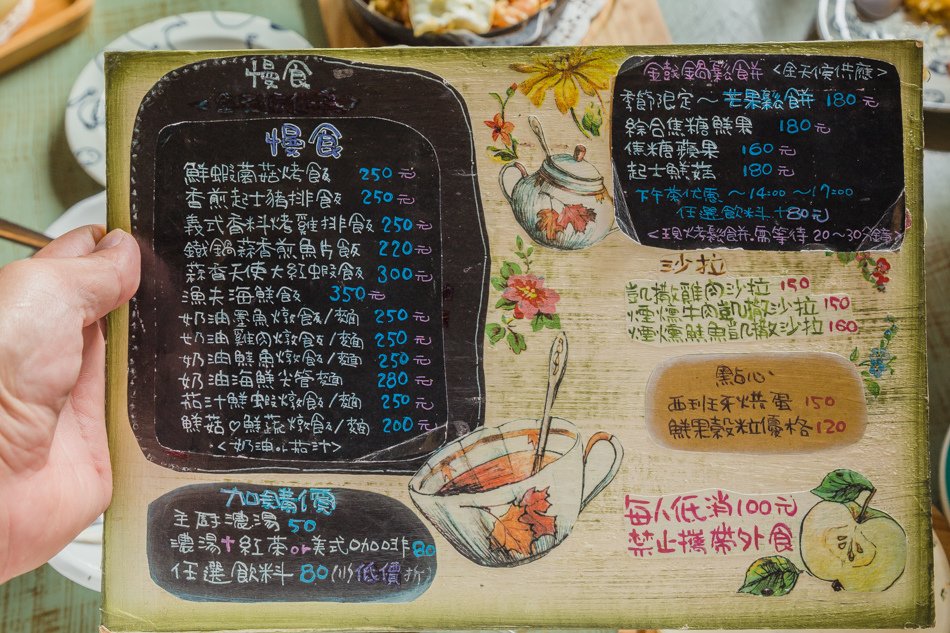 慢食
慢食
鮮蝦蘑菇烤飯 250元
香煎起士豬排飯 250元
義式香料烤雞排飯 250元
鐵鍋蒜香煎魚片飯 220元
蒜香天使大紅蝦飯 300元
漁夫海鮮飯 350元
奶油墨魚燉飯/麵 250元
奶油雞肉燉飯/麵 250元
奶油鮭魚燉飯/麵 250元
奶油海鮮尖管麵 280元
茄汁鮮蝦燉飯/麵 250元
鮮菇♡鮮蔬燉飯/麵 200元
<奶油or茄汁>
加購價
主廚濃湯 50
濃湯+紅茶or美式咖啡 80
任選飲料 80(以低價折)
金鼓鍋鬆食餅 <全天候供應>
季節限定~芒果鬆餅 180元
綜合焦糖鮮果 180元
焦糖蘋果 160元
起士鮮菇 180元
下午茶優惠 ~14:00~17:00
任選飲料+80元
<現烤鬆餅.需等待20~30分鐘>
沙拉
凱撒雞肉沙拉 150
煙燻牛肉凱撒沙拉 150
煙燻鮭魚凱撒沙拉 160
點心
西班牙烘蛋 150
鮮果穀粒優格 120
每人低消100元
禁止攜帶外食